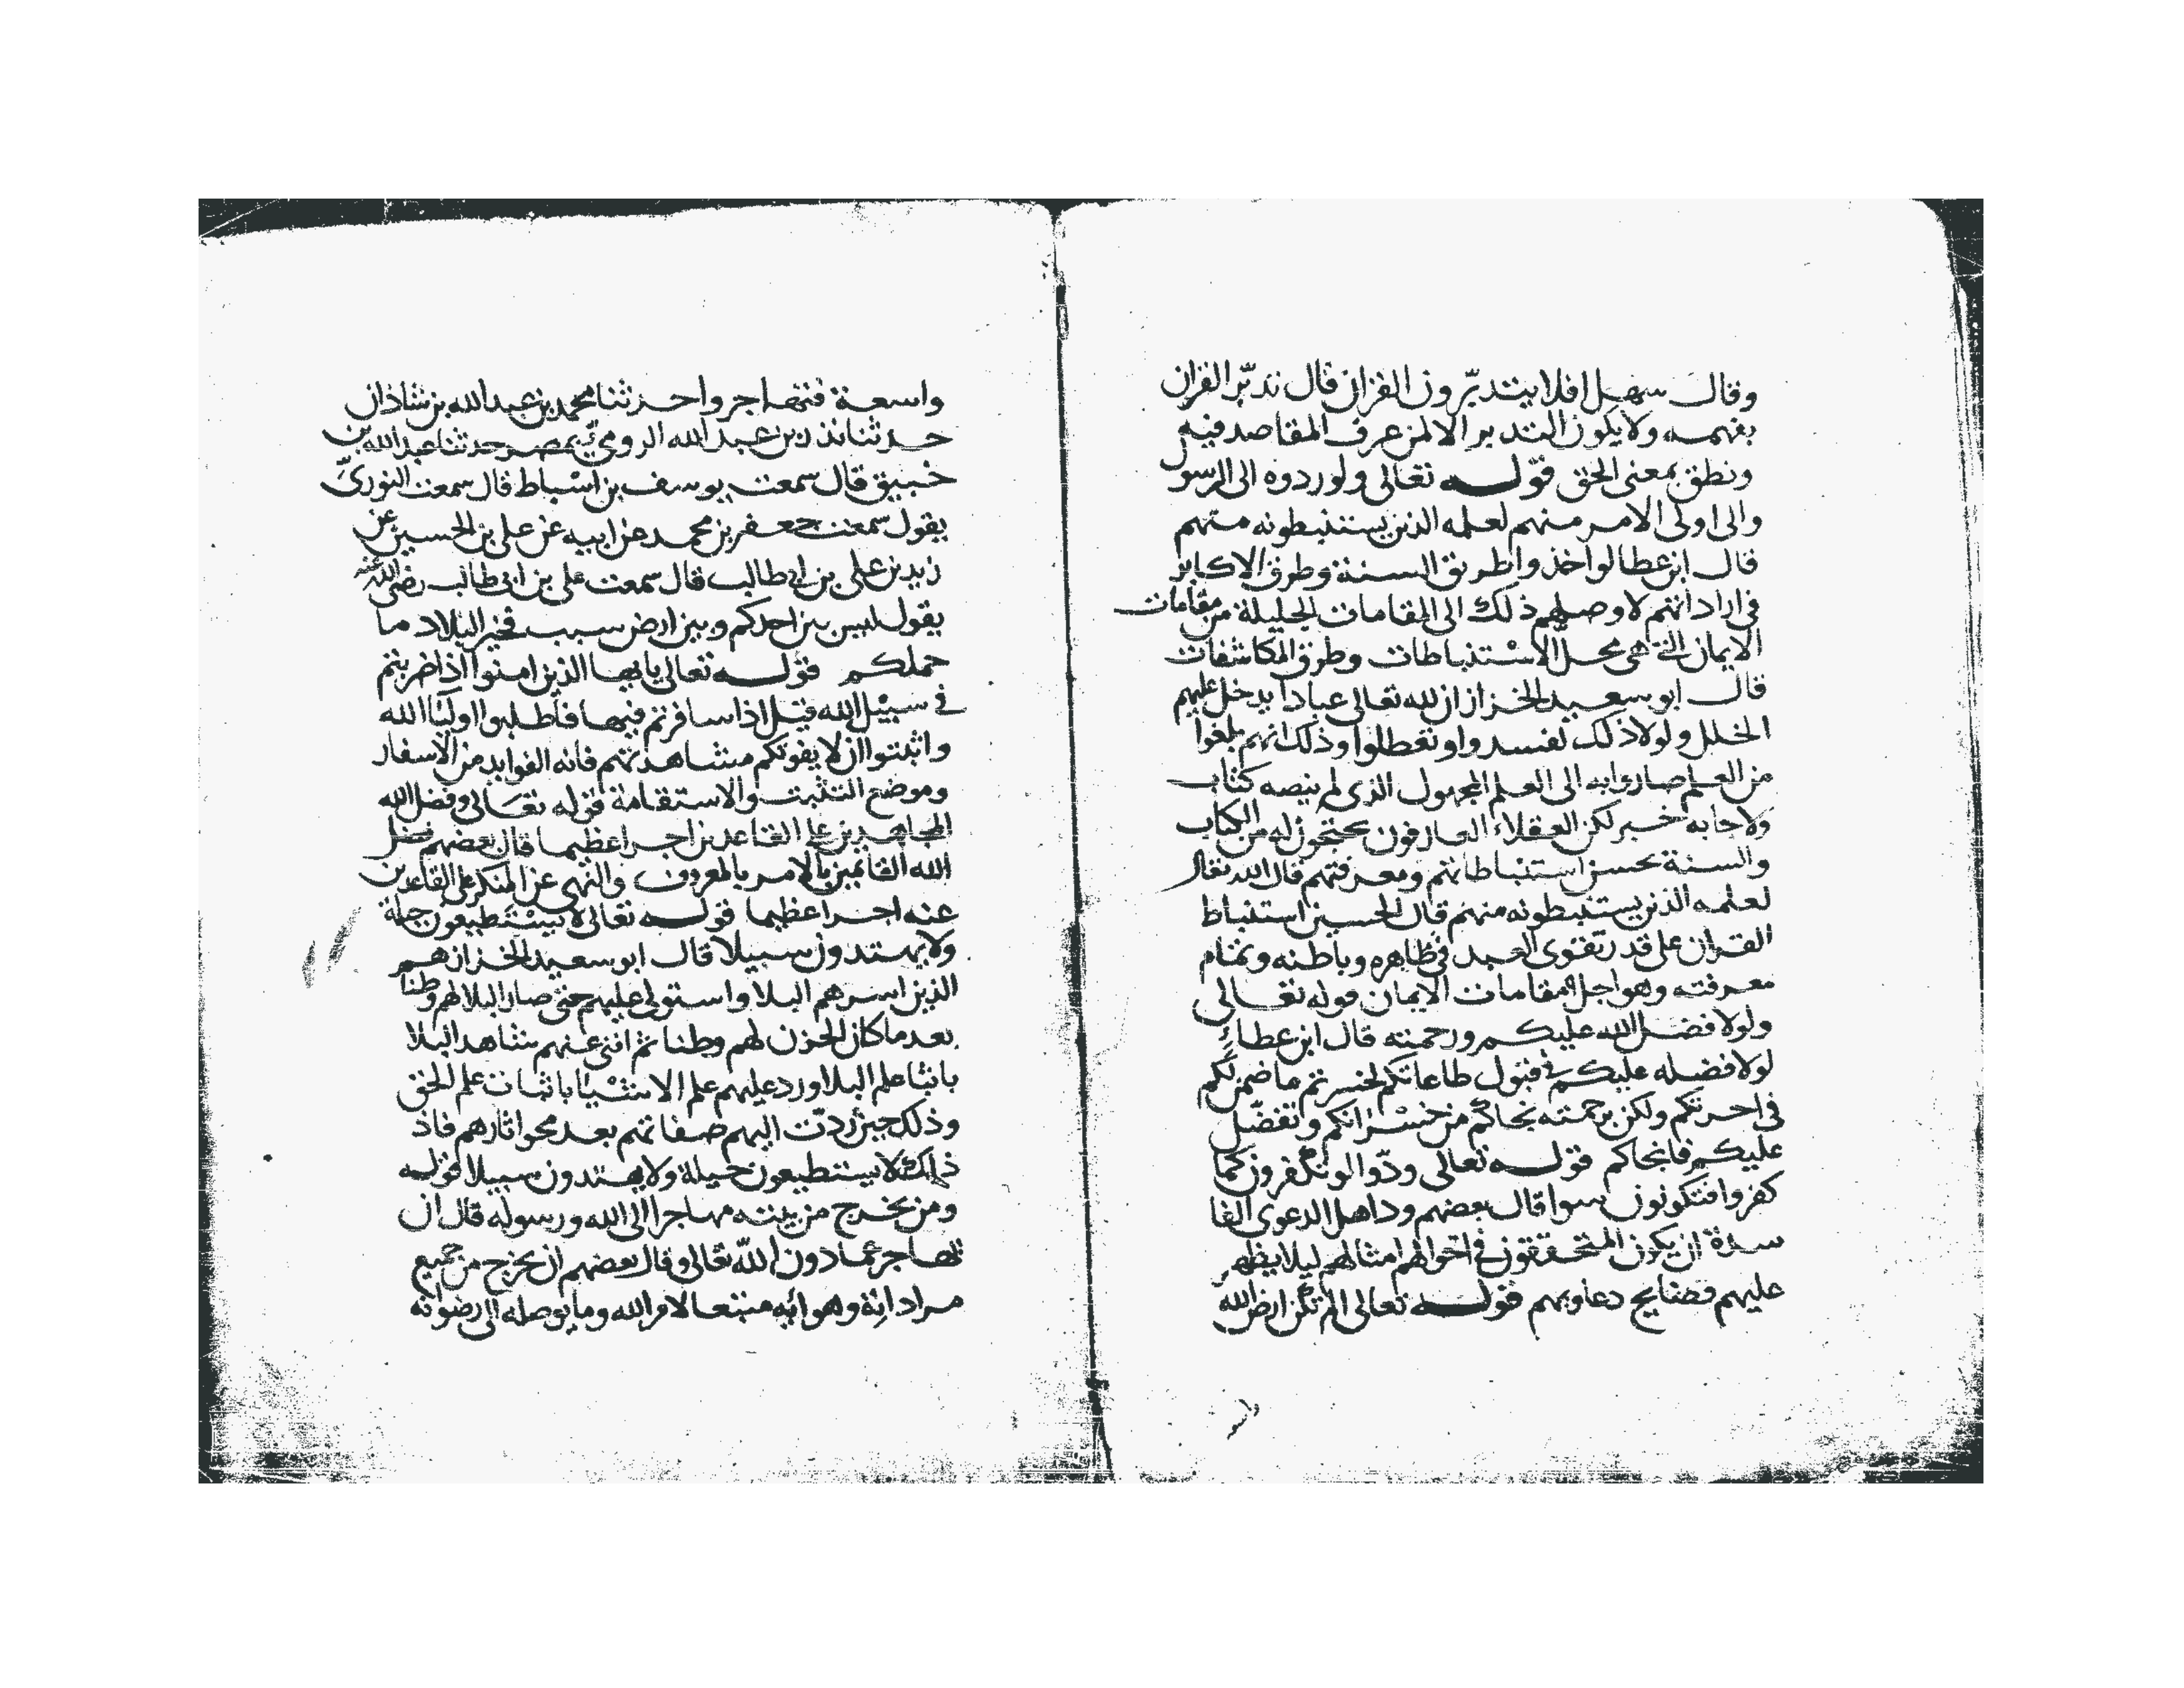 وقال سهل افلا يتدبرون القران قال تدبّر القران
بفهمه ولا يكون التدبر الا لمن عرف المقاصد فيه
ونطق بمعنى الحق قوله تعالى ولو ردوه الى الرسول
والى اولى الامر منهم لعلمه الذين يستنبطونه منهم
قال ابن عطا لو اخذوا طريق السنة وطرق الاكابر
في اراداتهم لاوصلهم ذلك الى المقامات الجليلة من مقامات
الايمان التي هي محل الاستنباطات وطرق المكاشفات
قال ابو سعيد الخراز ان لله تعالى عبادا يدخل عليهم
الخلل ولولا ذلك لفسدوا وتعطلوا وذلك انهم بلغوا
من العلم صاروا به الى العلم المجهول الذي لم ينصه كتاب
ولا جا به خبر لكن العقلاء العارفون يحتجون له من الكتاب
والسنة بحسن استنباطاتهم ومعرفتهم قال الله تعالى
لعلمه الذين يستنبطونه منهم قال الحسين استنباط
القران على قدر تقوى العبد في ظاهره وباطنه وتمام
معرفته وهو اجل مقامات الايمان قوله تعالى
ولولا فضل الله عليكم ورحمته قال ابن عطاء
لولا فضله عليكم في قبول طاعاتكم لخسرتم ما ضمن لكم
في اخرتكم ولكن برحمته نجاكم من خسرانكم وتفضل
عليكم فانجاكم قوله تعالى ودّوا لو تكفرون كما
كفروا فتكونون سوا قال بعضهم ود اهل الدعوى الفا
سدة ان يكون المتحققون في احوالهم امثالهم ليلا يظهر
عليهم فضايح دعاويهم قوله تعالى الم تكن ارض الله
واسعة
واسعة فتهاجروا حدثنا محمد بن عبد الله بن شاذان
حدثنا بن عبد الله الرومي بمصر حدثنا عبد الله بن
خبيق قال سمعت يوسف بن اسباط قال سمعت الثوري
يقول سمعت جعفر بن محمد عن ابيه عن علي بن الحسين عن
زيد بن علي بن ابي طالب قال سمعت علي بن ابي طالب رضي الله عنه
يقول ليس بين احدكم وبين ارض سبب فخير البلاد ما
حملكم قوله تعالى يايها الذين امنوا اذا ضربتم
في سبيل الله قيل اذا سافرتم فيها فاطلبوا اوليا الله
واثبتوا ان لا يفوتكم مشاهدتهم فانه الفوايد من الاسفار
وموضع التثبت والاستقامة قوله تعالى وفضل الله
المجاهدين على القاعدين اجرا عظيما قال بعضهم فضل
الله القائمين بالامر بالمعروف والنهي عن المنكر على القاعدين
عنه اجرا عظيما قوله تعالى لا يستطيعون حيلة
ولا يهتدون سبيلا قال ابو سعيد الخراز هم
الذين اسرهم البلا واستولى عليهم حتى صار البلا لهم وطنا
بعد ما كان الحزن لهم وطنا ثم افنى عنهم شاهد البلا
باثبا علم البلا اورد عليهم علم الاشيا باثبات علم الحق
وذلك حين ردّت اليهم صفاتهم بعد محو اثارهم فاذ
ذلك لا يستطيعون حيلة ولا يهتدون سبيلا قوله
ومن يخرج من بيته مهاجرا الى الله ورسوله قال ان
تهاجر عما دون الله تعالى وقال بعضهم ان يخرج من جميع
مراداته وهوائه متبعا لامر الله وما يوصله الى رضوانه